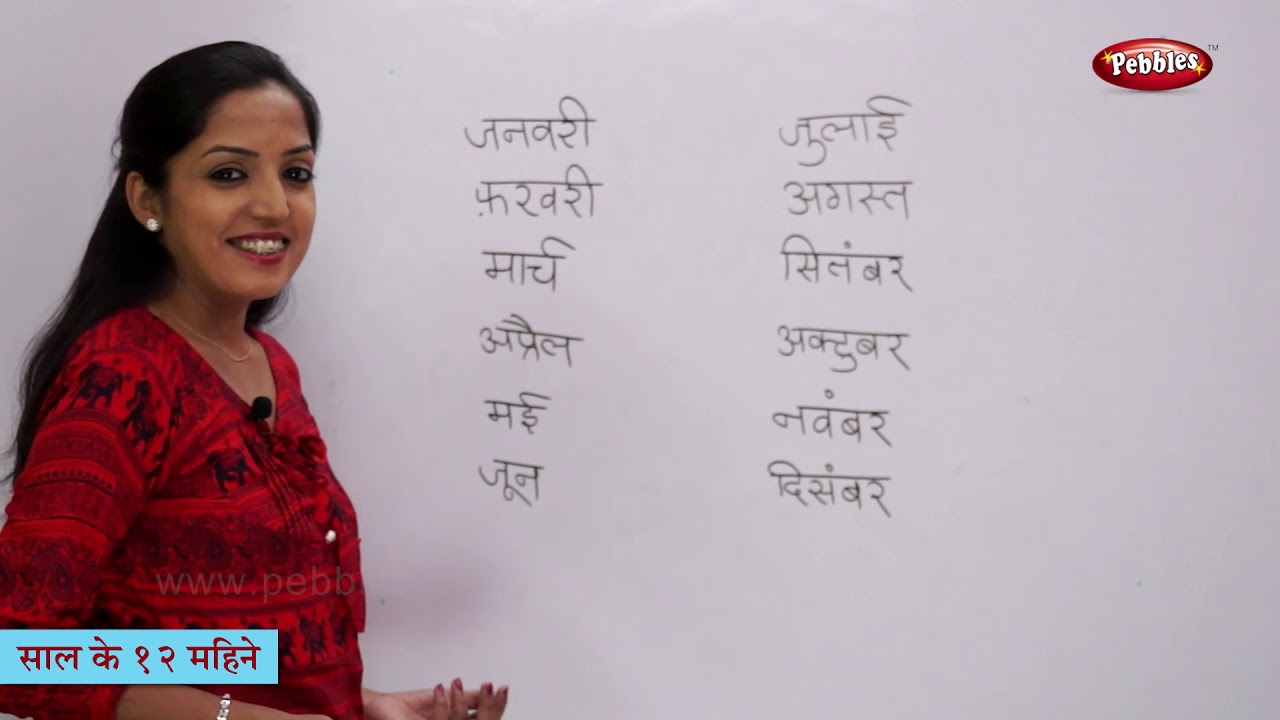 Pebbles™
जनवरी
फ़रवरी
मार्च
अप्रैल
मई
जून
जुलाई
अगस्त
सितंबर
अक्टुबर
नवंबर
दिसंबर
www.pebbl
साल के १२ महिने